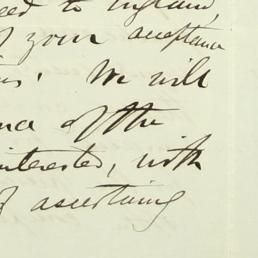 to England,
of your acceptance
We will
of the
interested, with
of ascertaining